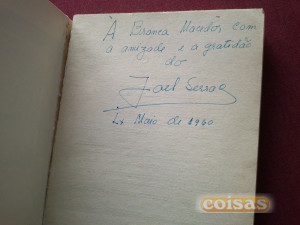 À Branca Mandós, com
a amizade e a gratidão
do
Joel Serrão
Lx Maio de 1960
coisas